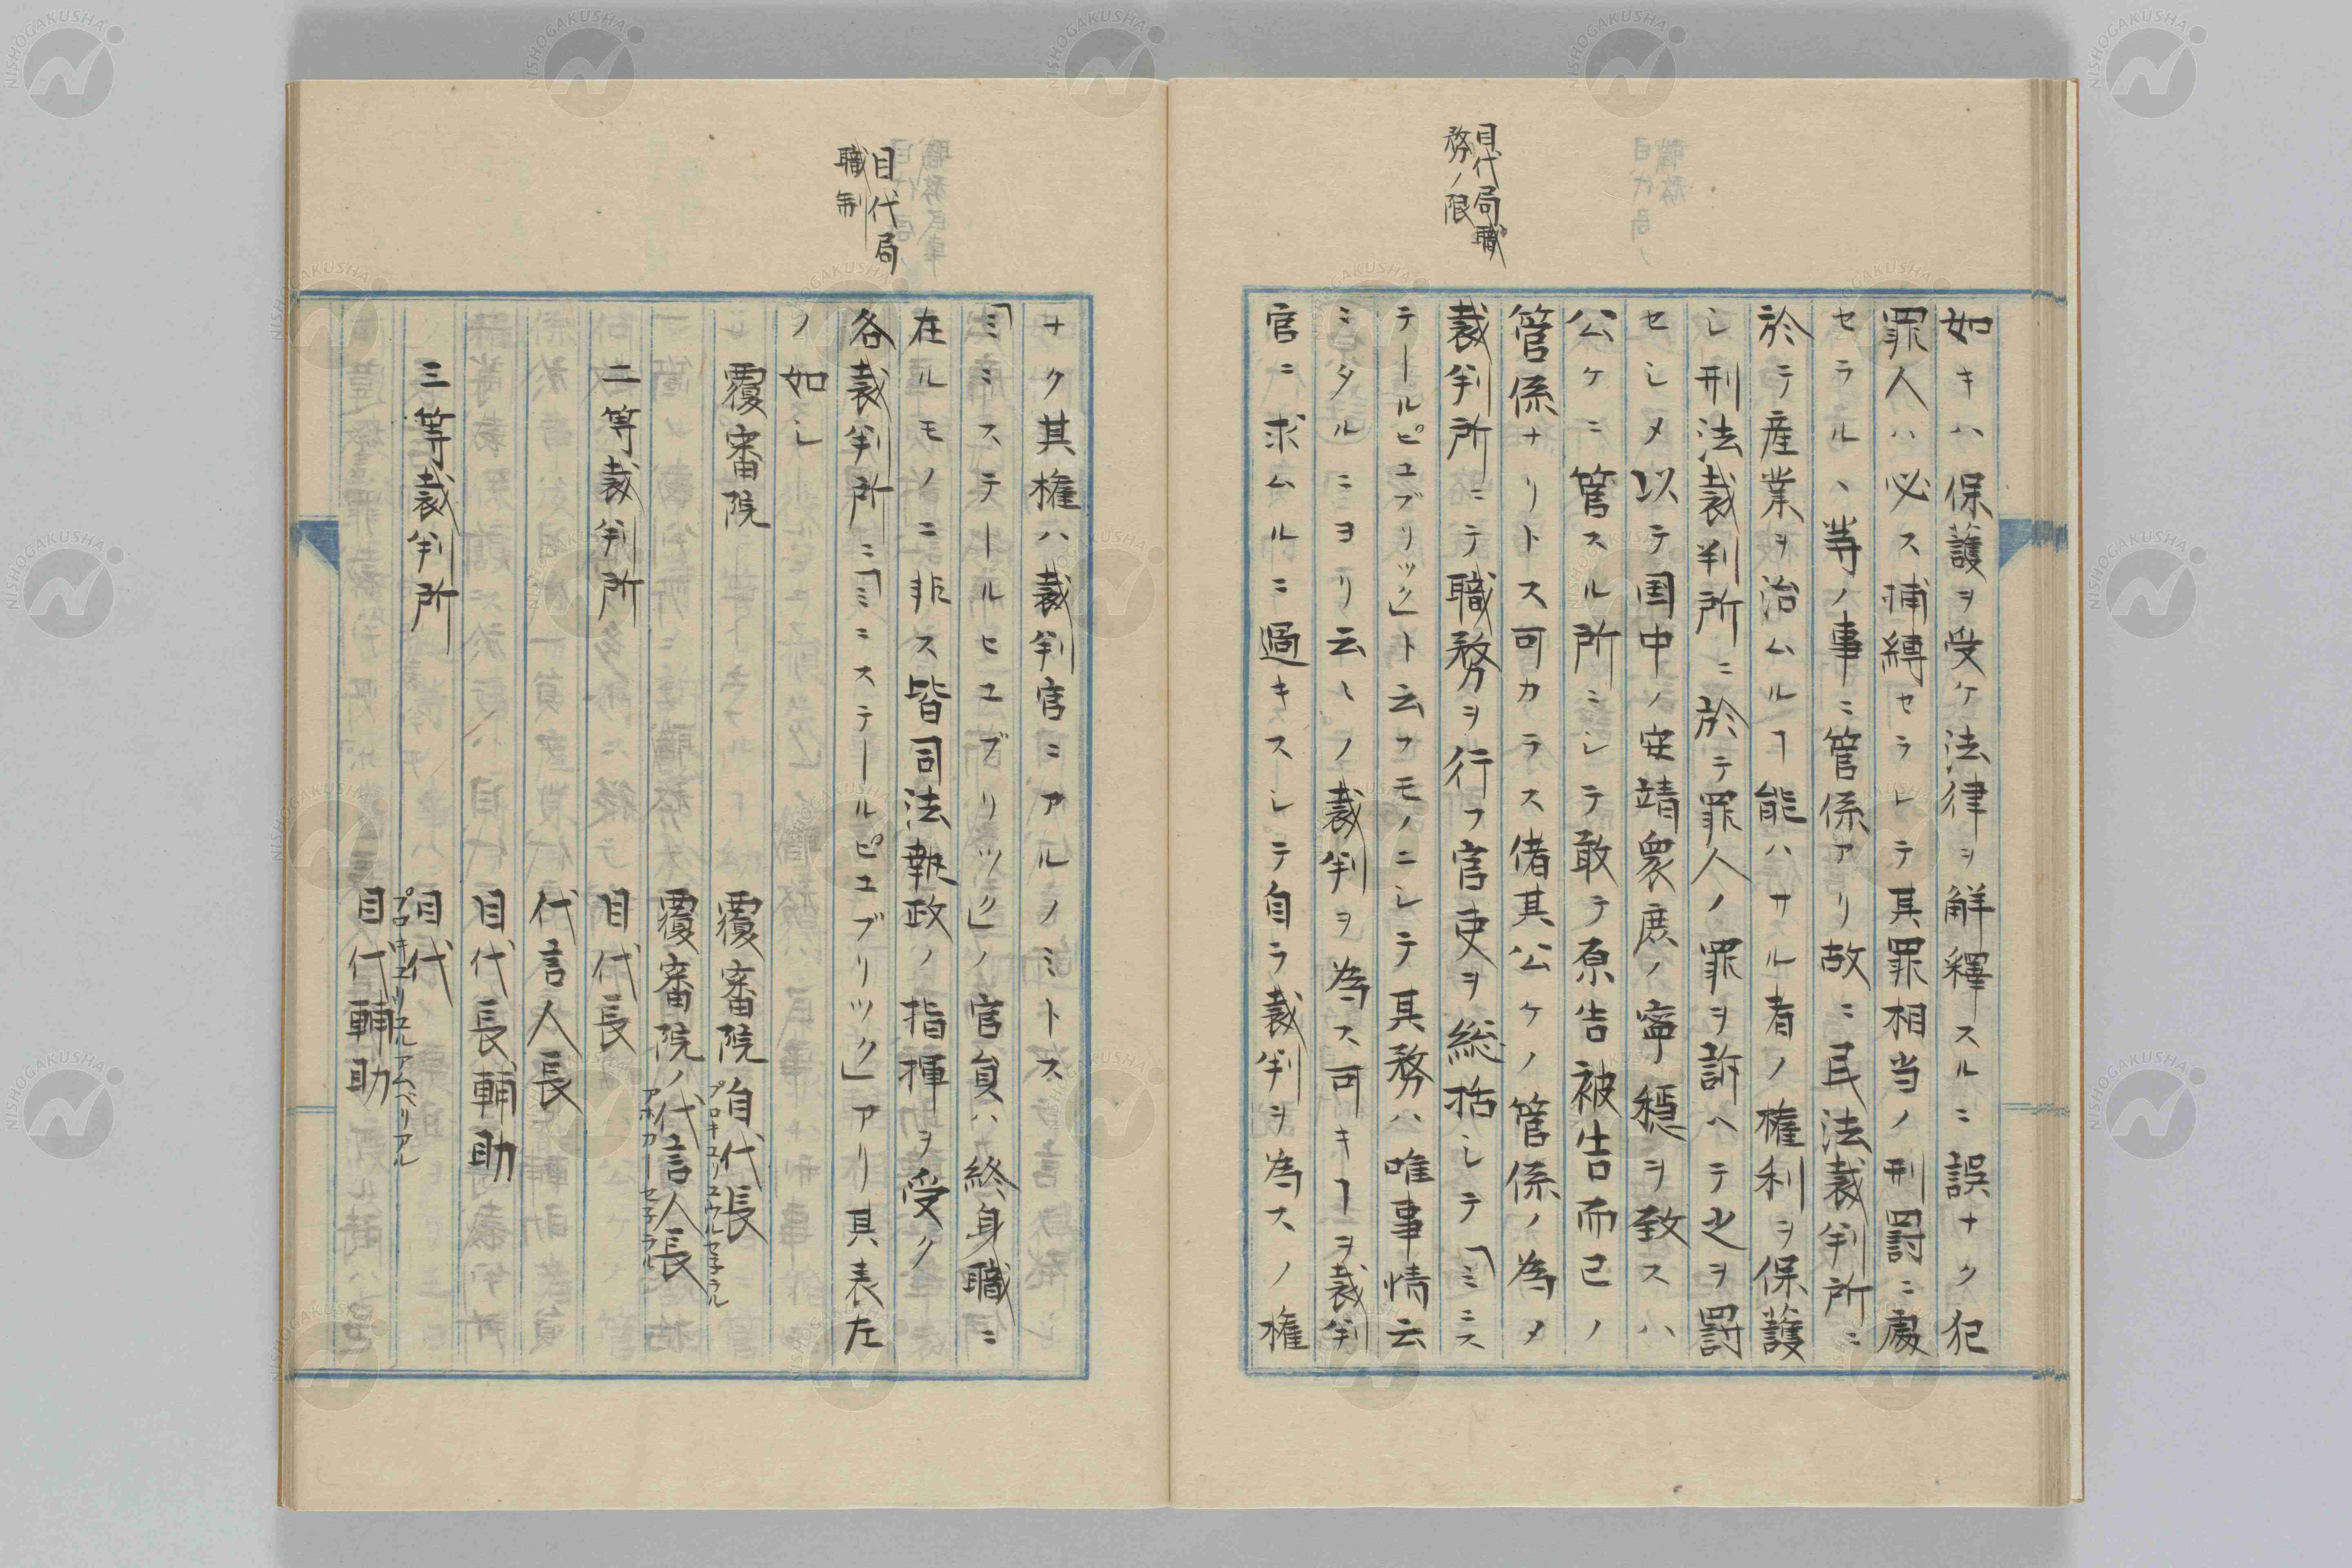 如キハ保護ヲ受ケ法律ヲ解釋スルニ誤ナク犯
罪人ハ必ス捕縛セラレテ其罪相当ノ刑罰ニ處
セラルヽ等ノ事ニ管係アリ故ニ民法裁判所ニ
於テ産業ヲ治ムルヿ能ハサル者ノ権利ヲ保護
シ刑法裁判所ニ於テ罪人ノ罪ヲ訴ヘテ之ヲ罰
セシメ以テ国中ノ安靖衆庶ノ寧穏ヲ致スハ
公ケニ管スル所ニシテ敢テ原告被告而已ノ
管係ナリトス可カラス偖其公ケノ管係ノ為メ
目代局職
務ノ限
裁判所ニテ職務ヲ行フ官吏ヲ総括シテ「ミニス
テールピユブリック」ト云フモノニシテ其務ハ唯事情云
ミタルニヨリ云々ノ裁判ヲ為ス可キヿヲ裁判
官ニ求ムルニ過キスシテ自ラ裁判ヲ為スノ権
ナク其権ハ裁判官ニアルノミトス
「ミニステールヒユブリツク」ノ官員ハ終身職ニ
在ルモノニ非ス皆司法執政ノ指揮ヲ受ク
目代局
職制
各裁判所ニ「ミニステールピユブリツク」アリ其表左
ノ如シ
覆審院 覆審院目代長
プロキユリユウルセ子ラル
覆審院ノ代言人長
アホカーセ子ラル
二等裁判所 目代長
代言人長
目代長輔助
三等裁判所 目代
プロキユリユルアムペリアル
目代輔助
NISHOGAKUSHA